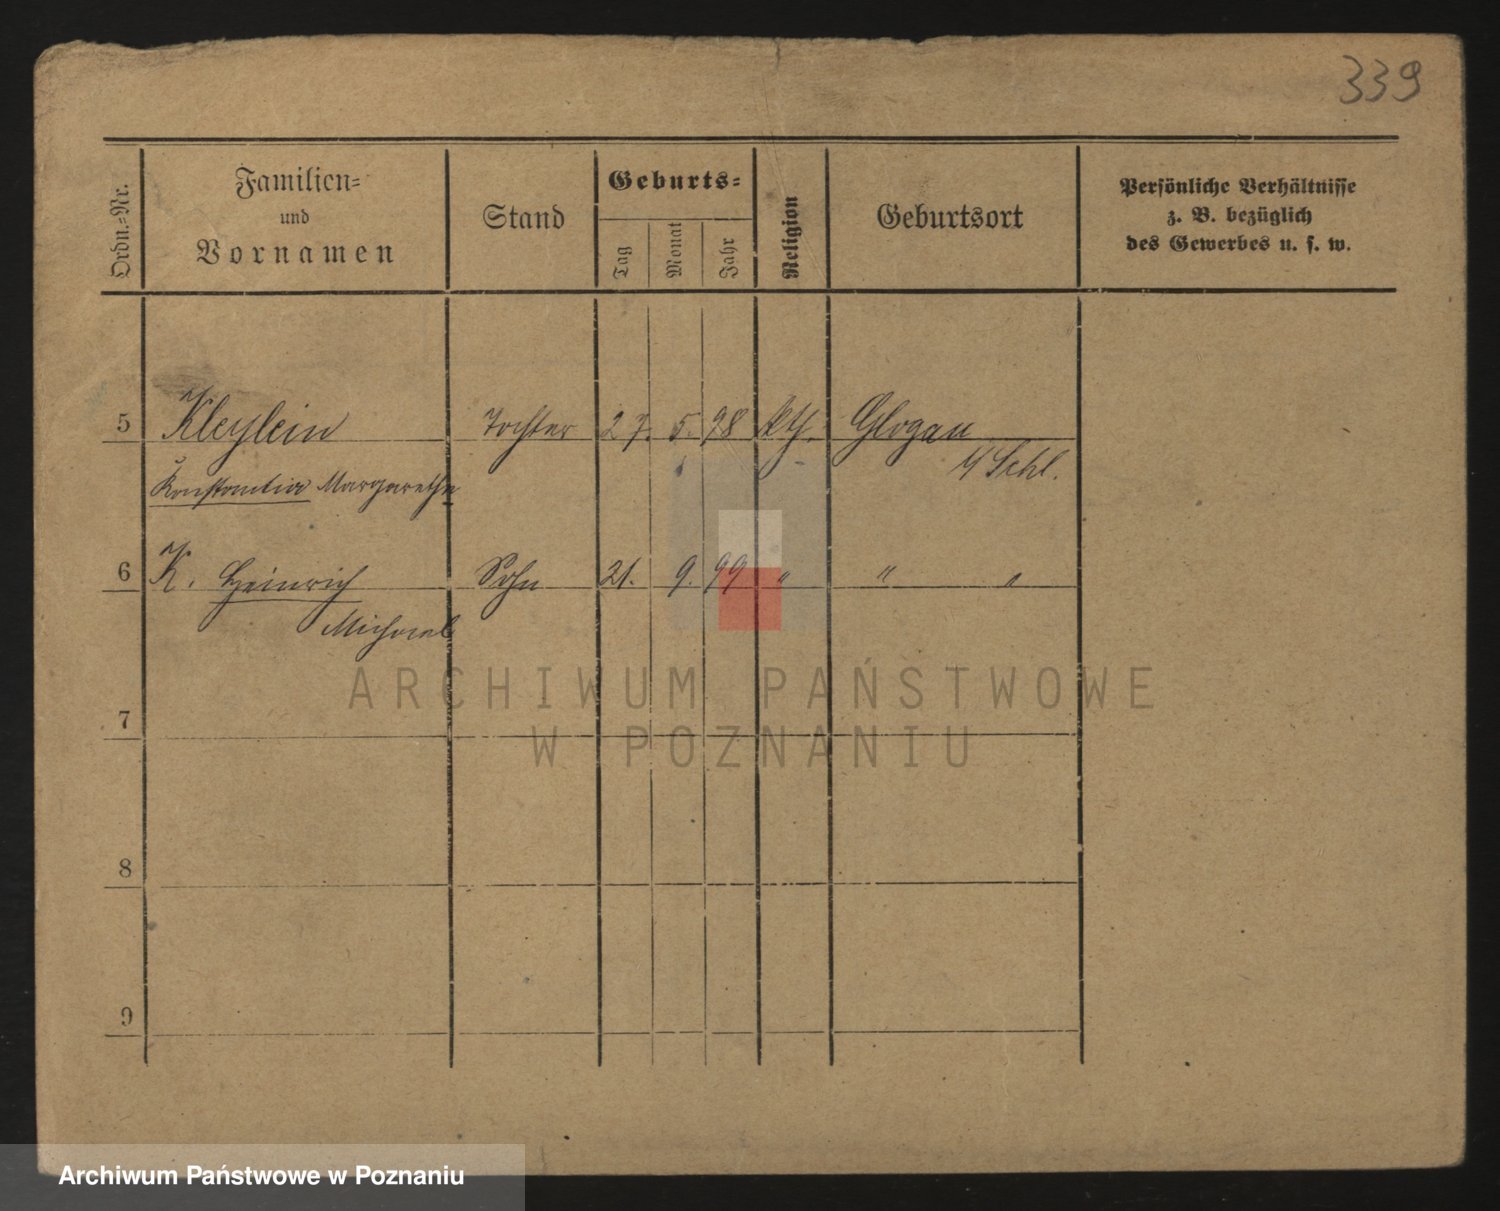 339
Ordn.=Nr.
Familien=
und
Vornamen
Stand
Geburts=
Tag
Monat
Jahr
Religion
Geburtsort
Persönliche Verhältnisse
z. B. bezüglich
des Gewerbes u. s. w.
5 Kleylein Tochter 27. 5. 98 kth. Glogau
Konstantia Margarethe Schl.
6 K. Heinrich Sohn 21. 9. 99 " " "
Michael
ARCHIWUM PAŃSTWOWE
7
W POZNANIU
8
9
Archiwum Państwowe w Poznaniu